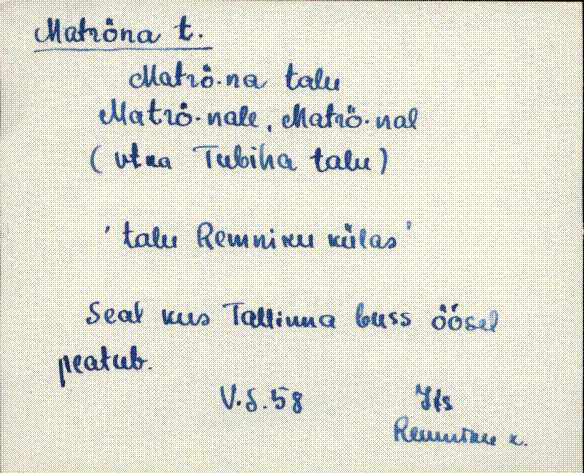 Matrõna t.
Matrõ·na talu
Matrõ·nale, Matrõ·nal
(vt ka Tubina talu)
'talu Remniku külas'
Seal kus Tallinna buss öösel
peatub.
V.S.58 Iis
Remniku k.